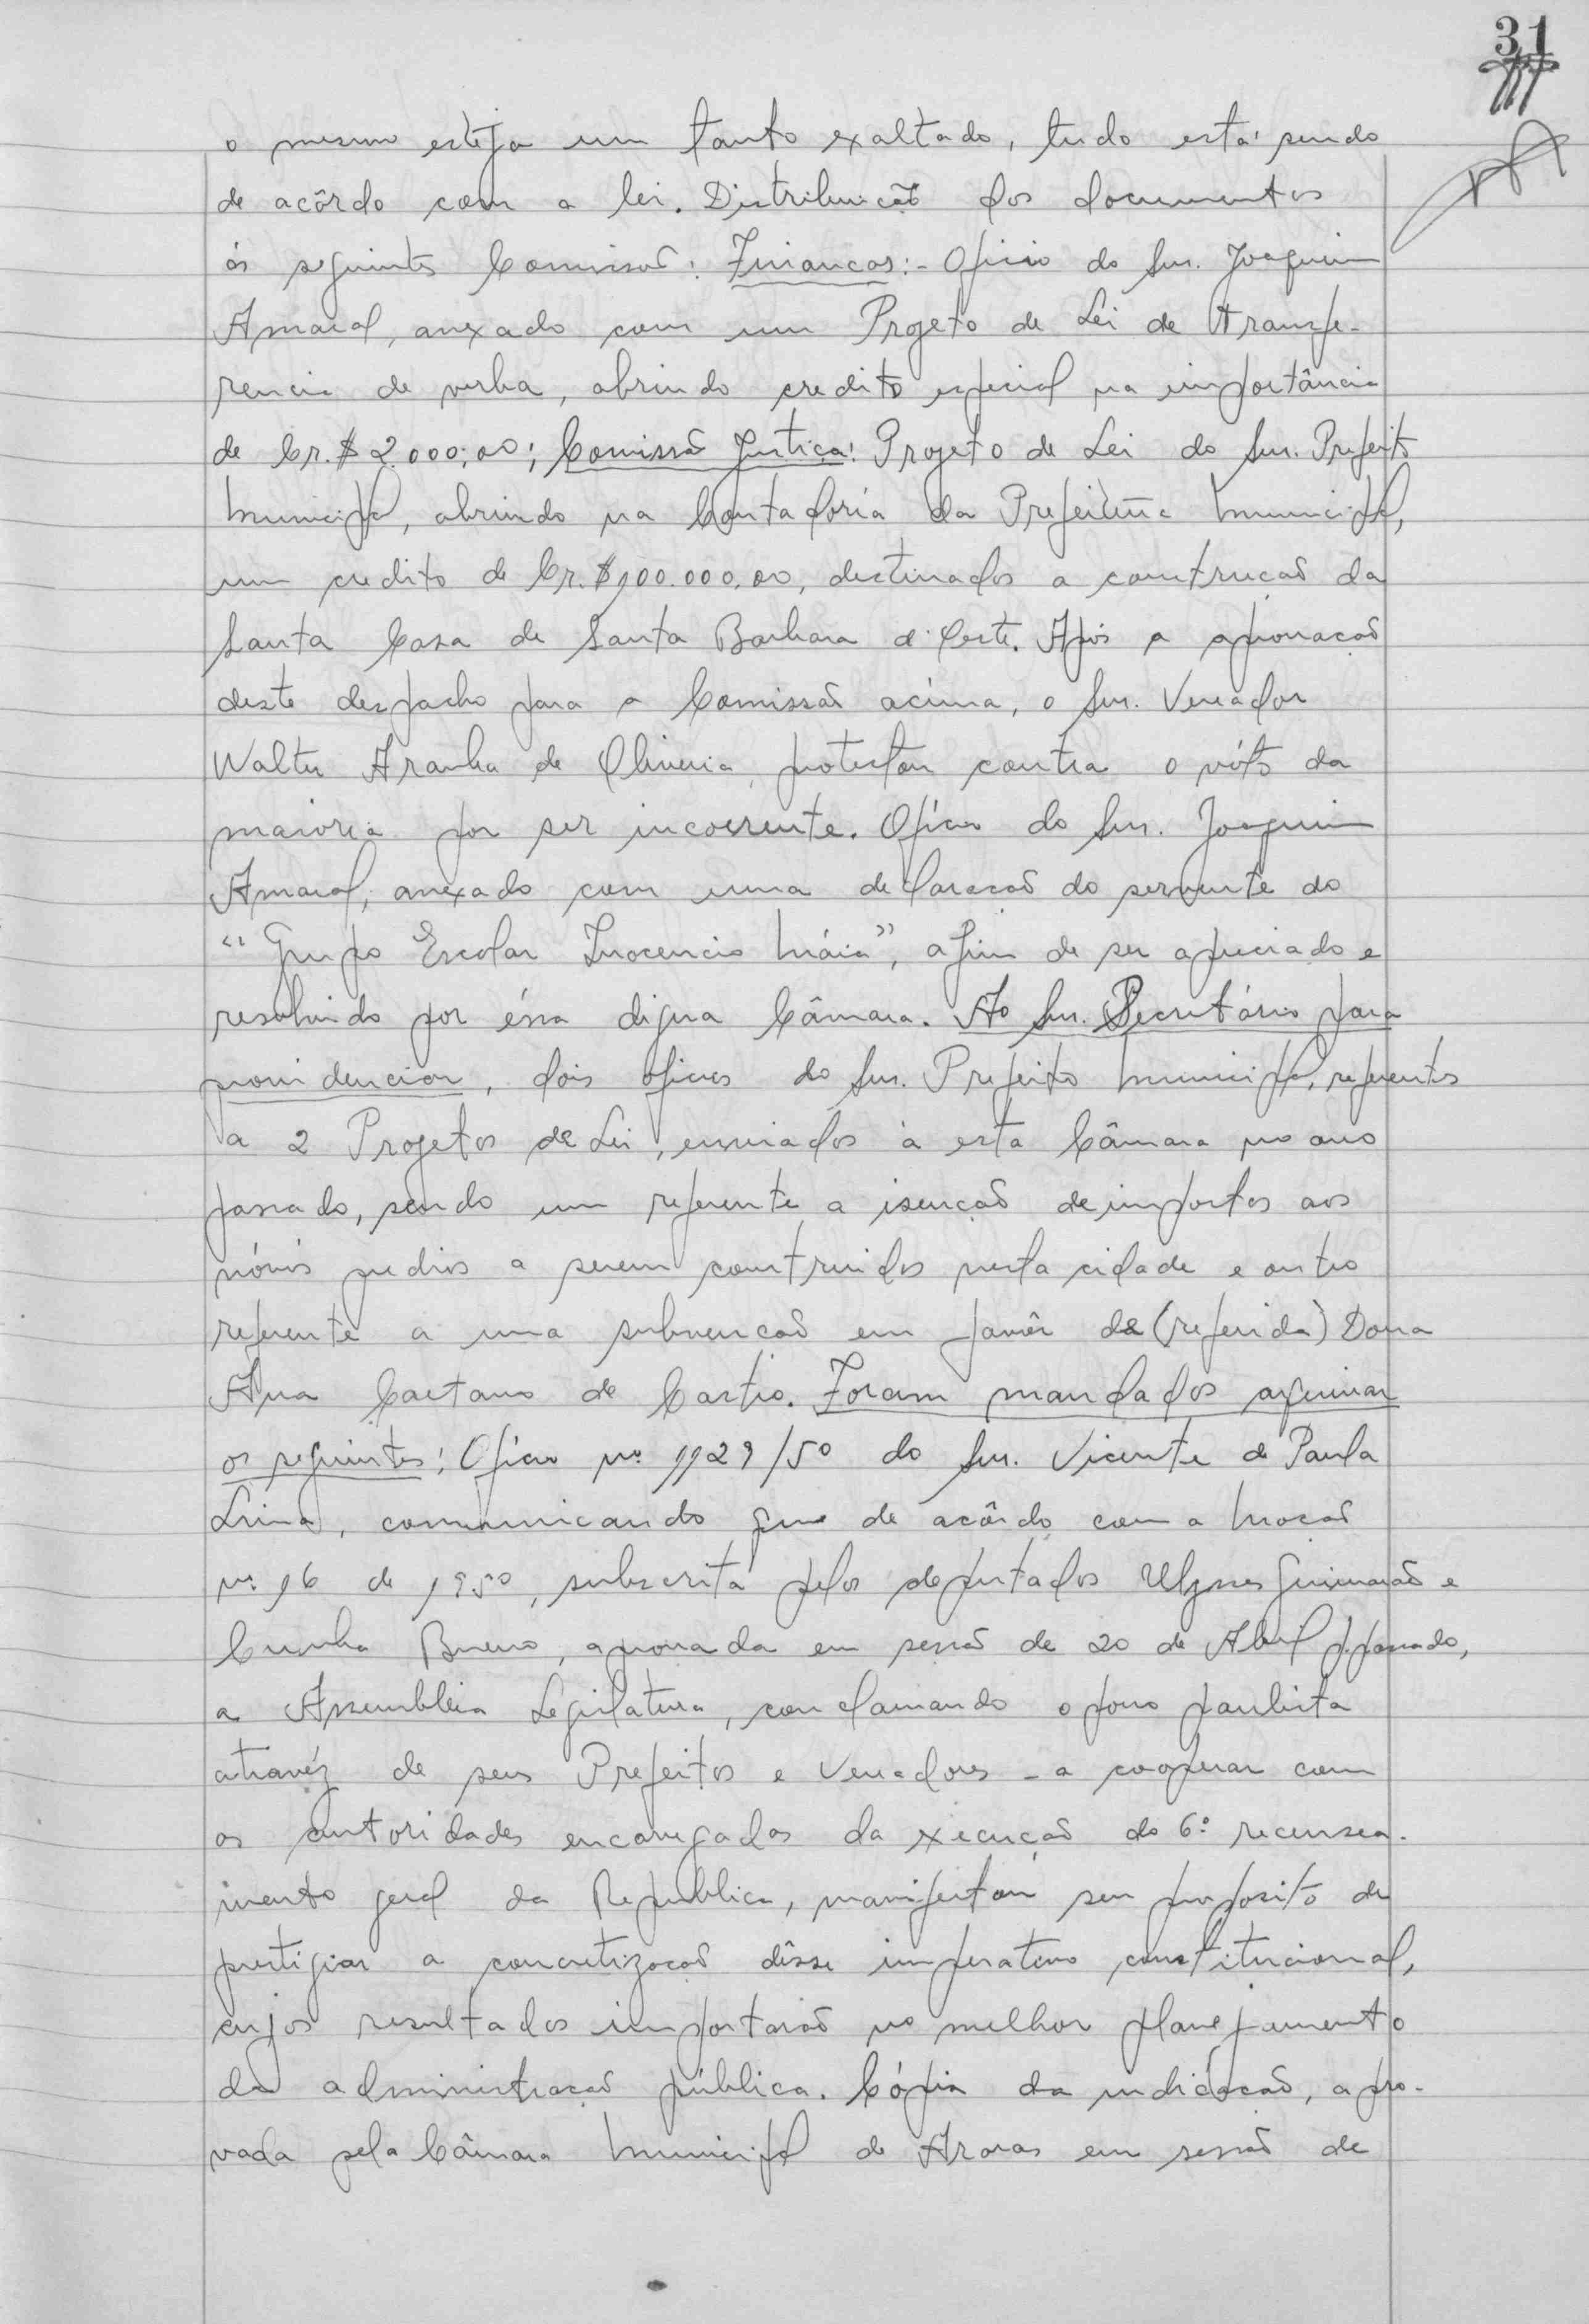 31
o mesmo esteja um tanto exaltado, tudo está sendo
de acôrdo com a lei. Distribuicão dos documentos
ás seguintes Comissoẽs: Financas:- Oficio do Snr. Joaquim
Amaral, anexado com um Projeto de Lei de transfe-
rencia de verba, abrindo credito especial na importância
de Cr.$ 2.000,00; Comissão Justiça: Projeto de Lei do Snr. Prefeito
Municipal, abrindo na Contadoria da Prefeitura Municipal,
um credito de Cr.$ 100.000,00, destinados a construcaõ da
Santa Casa de Santa Barbara d'Oeste. Após a aprovacaõ
deste despacho para a Comissaõ acima, o Snr. Vereador
Walter Aranha de Oliveira, protestou contra o vóto da
maioria por ser incoerente. Ofício do Snr. Joaquim
Amaral, anexado com uma declaracaõ do servente do
"Grupo Escolar Inocencio Máia", afim de ser apreciado e
resolvido por éssa digna Câmara. Ao Snr. Secretário para
providenciar, dois oficios do Snr. Prefeito Municipal, referentes
a 2 Projetos de Lei, enviados à esta Câmara no ano
passado, sendo um referente a isencaõ de impostos aos
nóvos predios a serem construidos nesta cidade e outro
referente a uma subvencaõ em favôr de (referida) Dona
Ana Caetano de Castro. Foram mandados arquivar
os seguintes: Ofício nº 1129/50 do Snr. Vicente de Paula
Lima, comunicando que de acôrdo com a Mocaõ
nº 16 de 1950, subscrita pelos deputados Ulysses Guimarães e
Cunha Bueno, aprovada em sessaõ de 20 de Abril p.passado,
a Assembléia Legislativa, conclamando o povo paulista
atravéz de seus Prefeitos e Vereadores - a cooperar com
as autoridades encarregadas da execucaõ do 6º recensea-
mento geral da Republica, manifestou seu proposito de
prestigiar a concretizacaõ dêsse imperativo constitucional,
cujos resultados importaraõ no melhor planejamento
da administracaõ pública. Cópia da indicacaõ, apro-
vada pela Câmara Municipal de Araras em sessaõ de